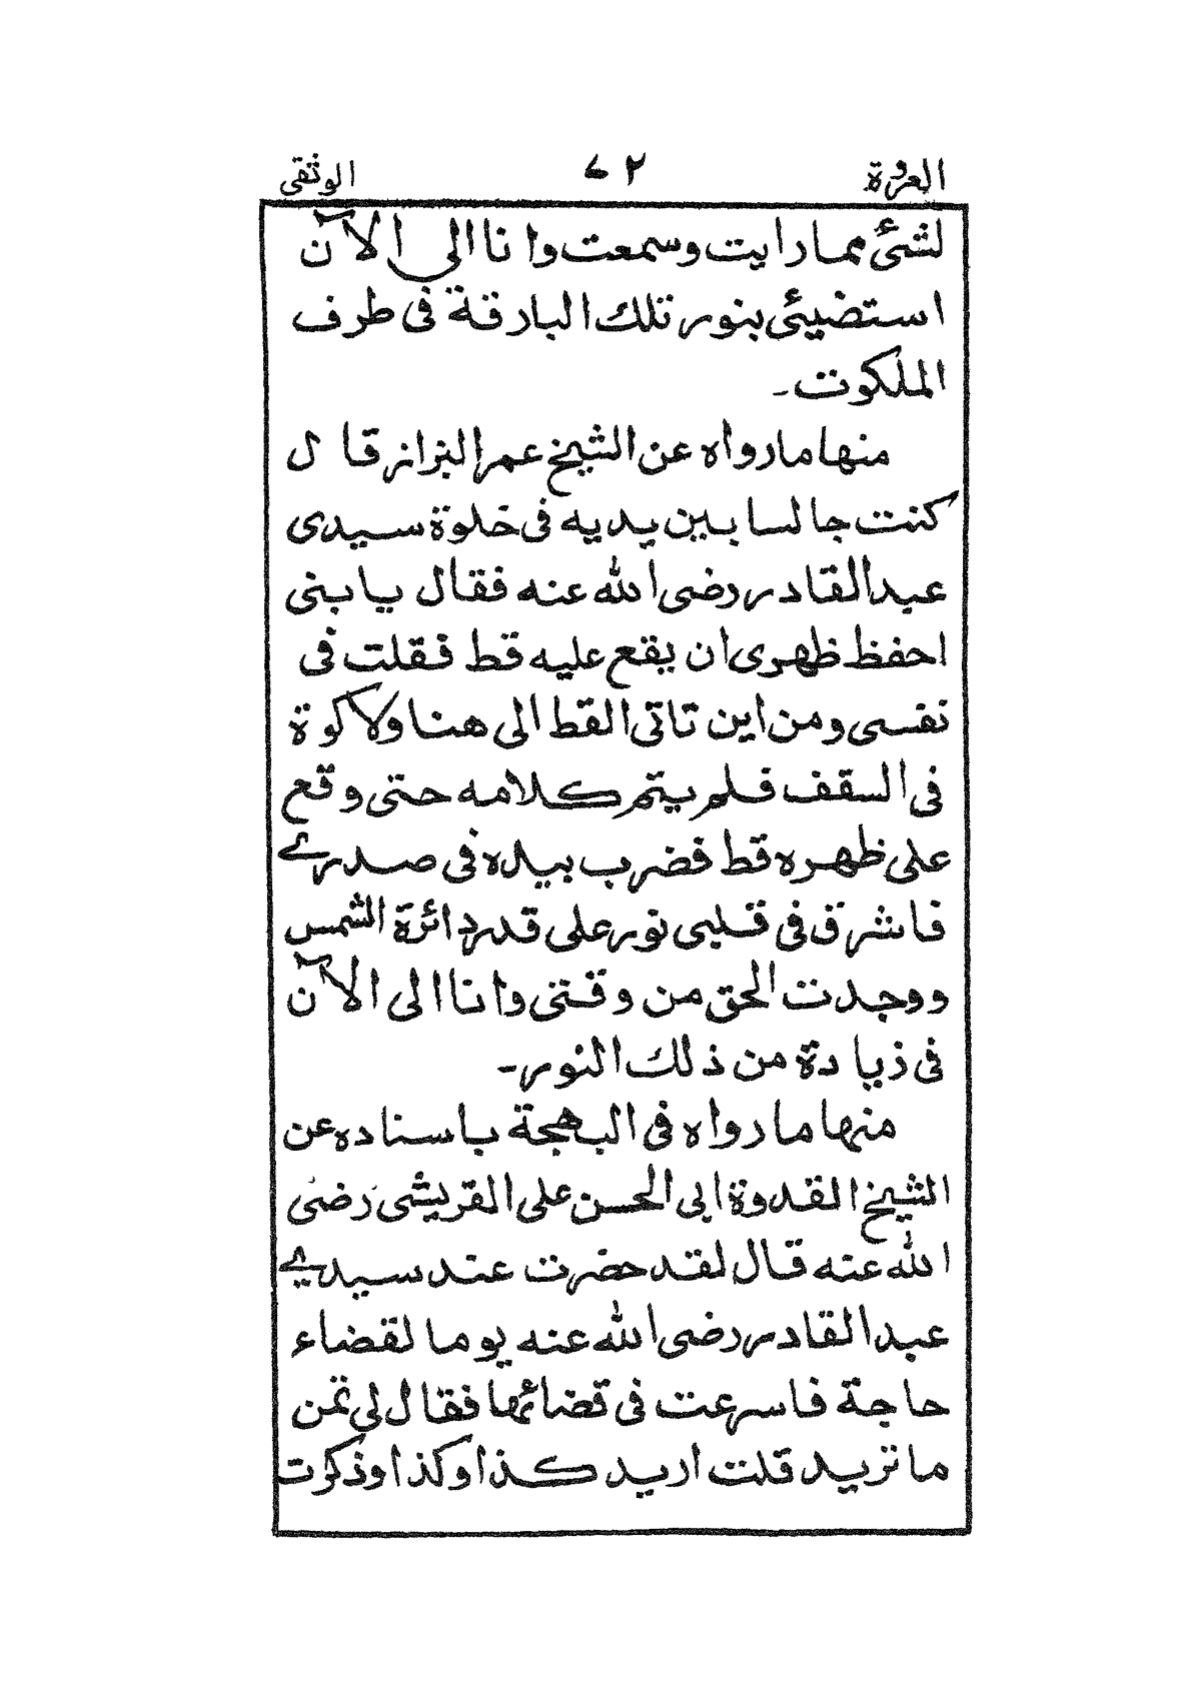 العروة ٧٢ الوثقى
لشئ ممارايت وسمعت وانا الى الآن
استضيئ بنور تلك البارقة فى طرف
الملكوت۔
منها مارواه عن الشيخ عمر البزاز قال
كنت جالسا بين يديه فى خلوة سيدى
عبدالقادر رضى الله عنه فقال يا بنى
احفظ ظهرى ان يقع عليه قط فقلت فى
نفسى ومن اين تاتى القط الى هنا ولا كوة
فى السقف فلم يتم كلامه حتى وقع
على ظهره قط فضرب بيده فى صدرے
فاشرق فى قلبى نور على قدر دائرة الشمس
ووجدت الحق من وقتى وانا الى الآن
فى زيادة من ذلك النور۔
منها مارواه فى البهجة باسناده عن
الشيخ القدوة ابى الحسن على القريشى رضى
الله عنه قال لقد حضرت عند سيديے
عبدالقادر رضى الله عنه يوما لقضاء
حاجة فاسرعت فى قضائها فقال لى تمن
ما تريد قلت اريد كذا وكذا وذكرت